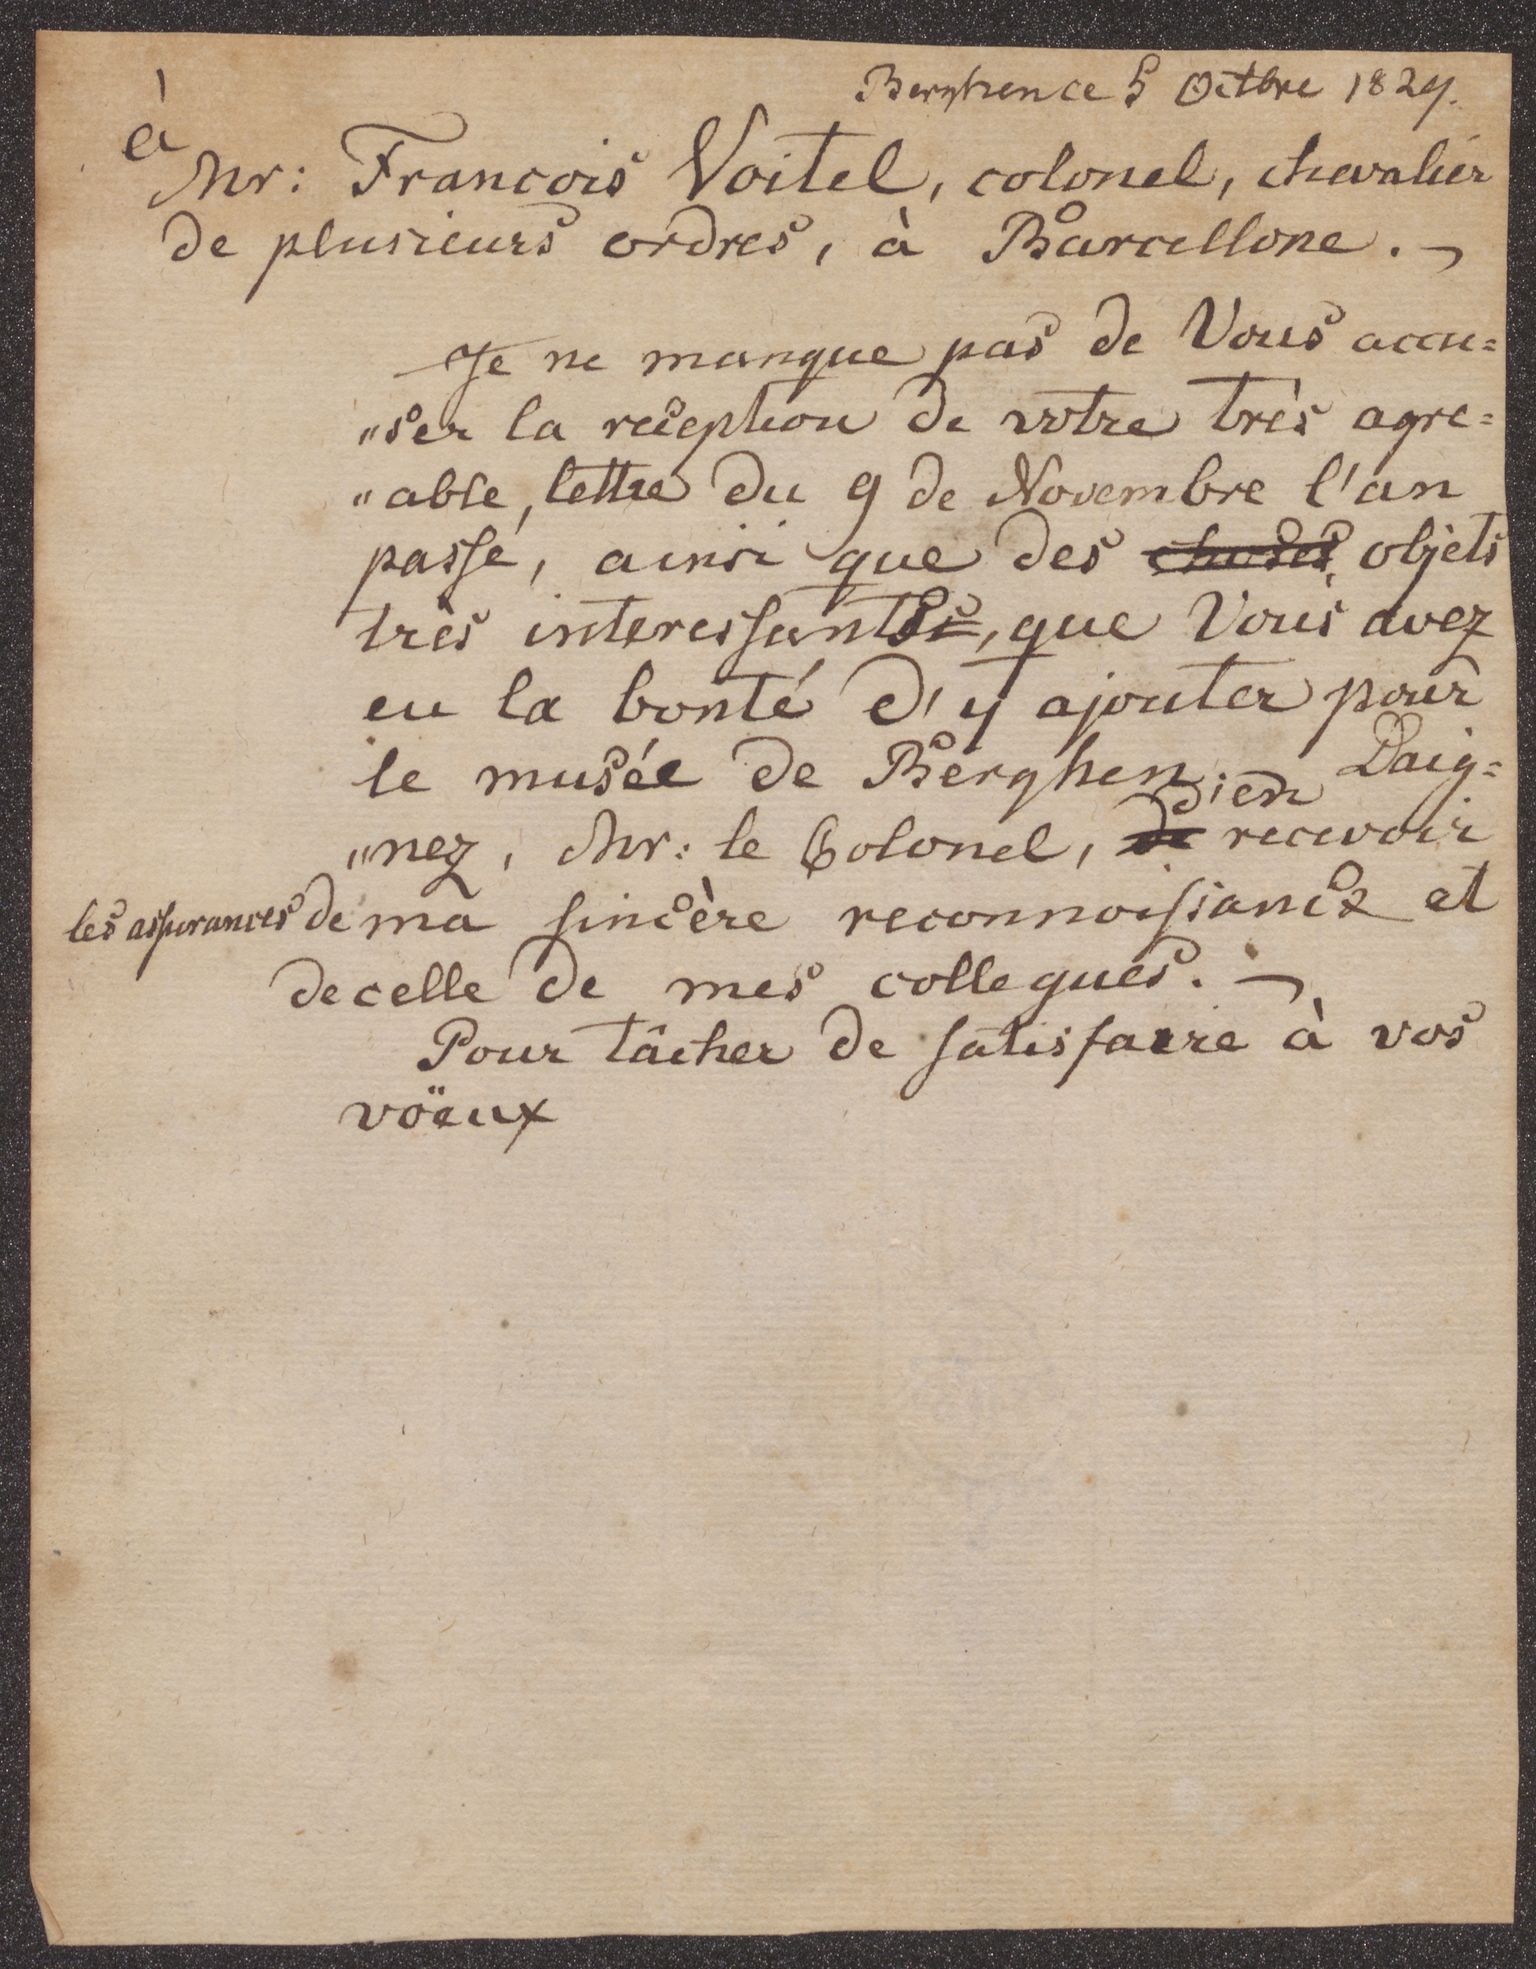 Berghen ce 5 Octbre 1829.
à
Mr: Francois Voitel, colonel, chevalier
de plusieurs ordres, à Barcellone. ¬
Je ne manque pas de Vous accu=
"ser la reception de votre très agre=
"able, lettre du 9 de Novembre l'an
passé, ainsi que des choses objets
très interessants, que Vous avez
eu la bonté d'y ajouter pour
le musée de Berghen. Daig=
d'en
"nez, Mr: le Colonel, de recevoir
les assurances de ma sincère reconnoissance et
de celle de mes collegues. ¬
Pour tâcher de satisfaire à vos
vöeux